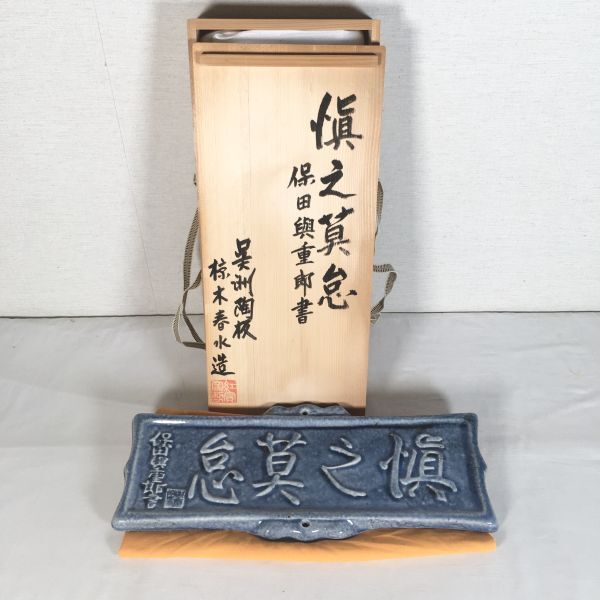 慎之莫怠
保田與重郎書
呉洲陶板
椋木春水造
慎之莫怠
保田與重郎書